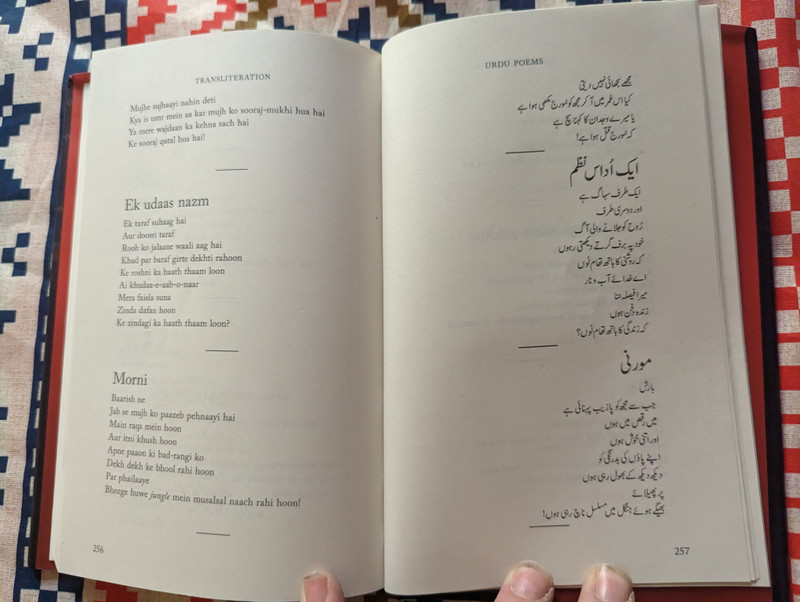 TRANSLITERATION
Mujhe sujhaayi nahin deti
Kya is umr mein aa kar mujh ko sooraj-mukhi hua hai
Ya mere wajdaan ka kehna sach hai
Ke sooraj qatal hua hai!
Ek udaas nazm
Ek taraf suhaag hai
Aur doosri taraf
Rooh ko jalaane waali aag hai
Khud par baraf girte dekhti rahoon
Ke roshni ka haath thaam loon
Ai khudaa-e-aab-o-naar
Mera faisla suna
Zinda dafan hoon
Ke zindagi ka haath thaam loon?
Morni
Baarish ne
Jab se mujh ko paazeb pehnaayi hai
Main raqs mein hoon
Aur itni khush hoon
Apne paaon ki bad-rangi ko
Dekh dekh ke bhool rahi hoon
Par phailaaye
Bheege huwe jungle mein musalsal naach rahi hoon!
256
URDU POEMS
مجھے سجھائی نہیں دیتی
کیا اس عمر میں آ کر مجھ کو سُورج مکھی ہوا ہے
یا میرے وجدان کا کہنا سچ ہے
کہ سُورج قتل ہوا ہے!
ایک اُداس نظم
ایک طرف سہاگ ہے
اور دوسری طرف
رُوح کو جلانے والی آگ
خود پہ برف گرتے دیکھتی رہوں
کہ روشنی کا ہاتھ تھام لُوں
اے خدائے آب و نار
میرا فیصلہ سُنا
زندہ دفن ہوں
کہ زندگی کا ہاتھ تھام لُوں؟
مورنی
بارش
جب سے مجھ کو پازیب پہنائی ہے
میں رقص میں ہوں
اور اتنی خوش ہوں
اپنے پاؤں کی بدرنگی کو
دیکھ دیکھ کے بھول رہی ہوں
پر پھیلائے
بھیگے ہوئے جنگل میں مسلسل ناچ رہی ہوں!
257